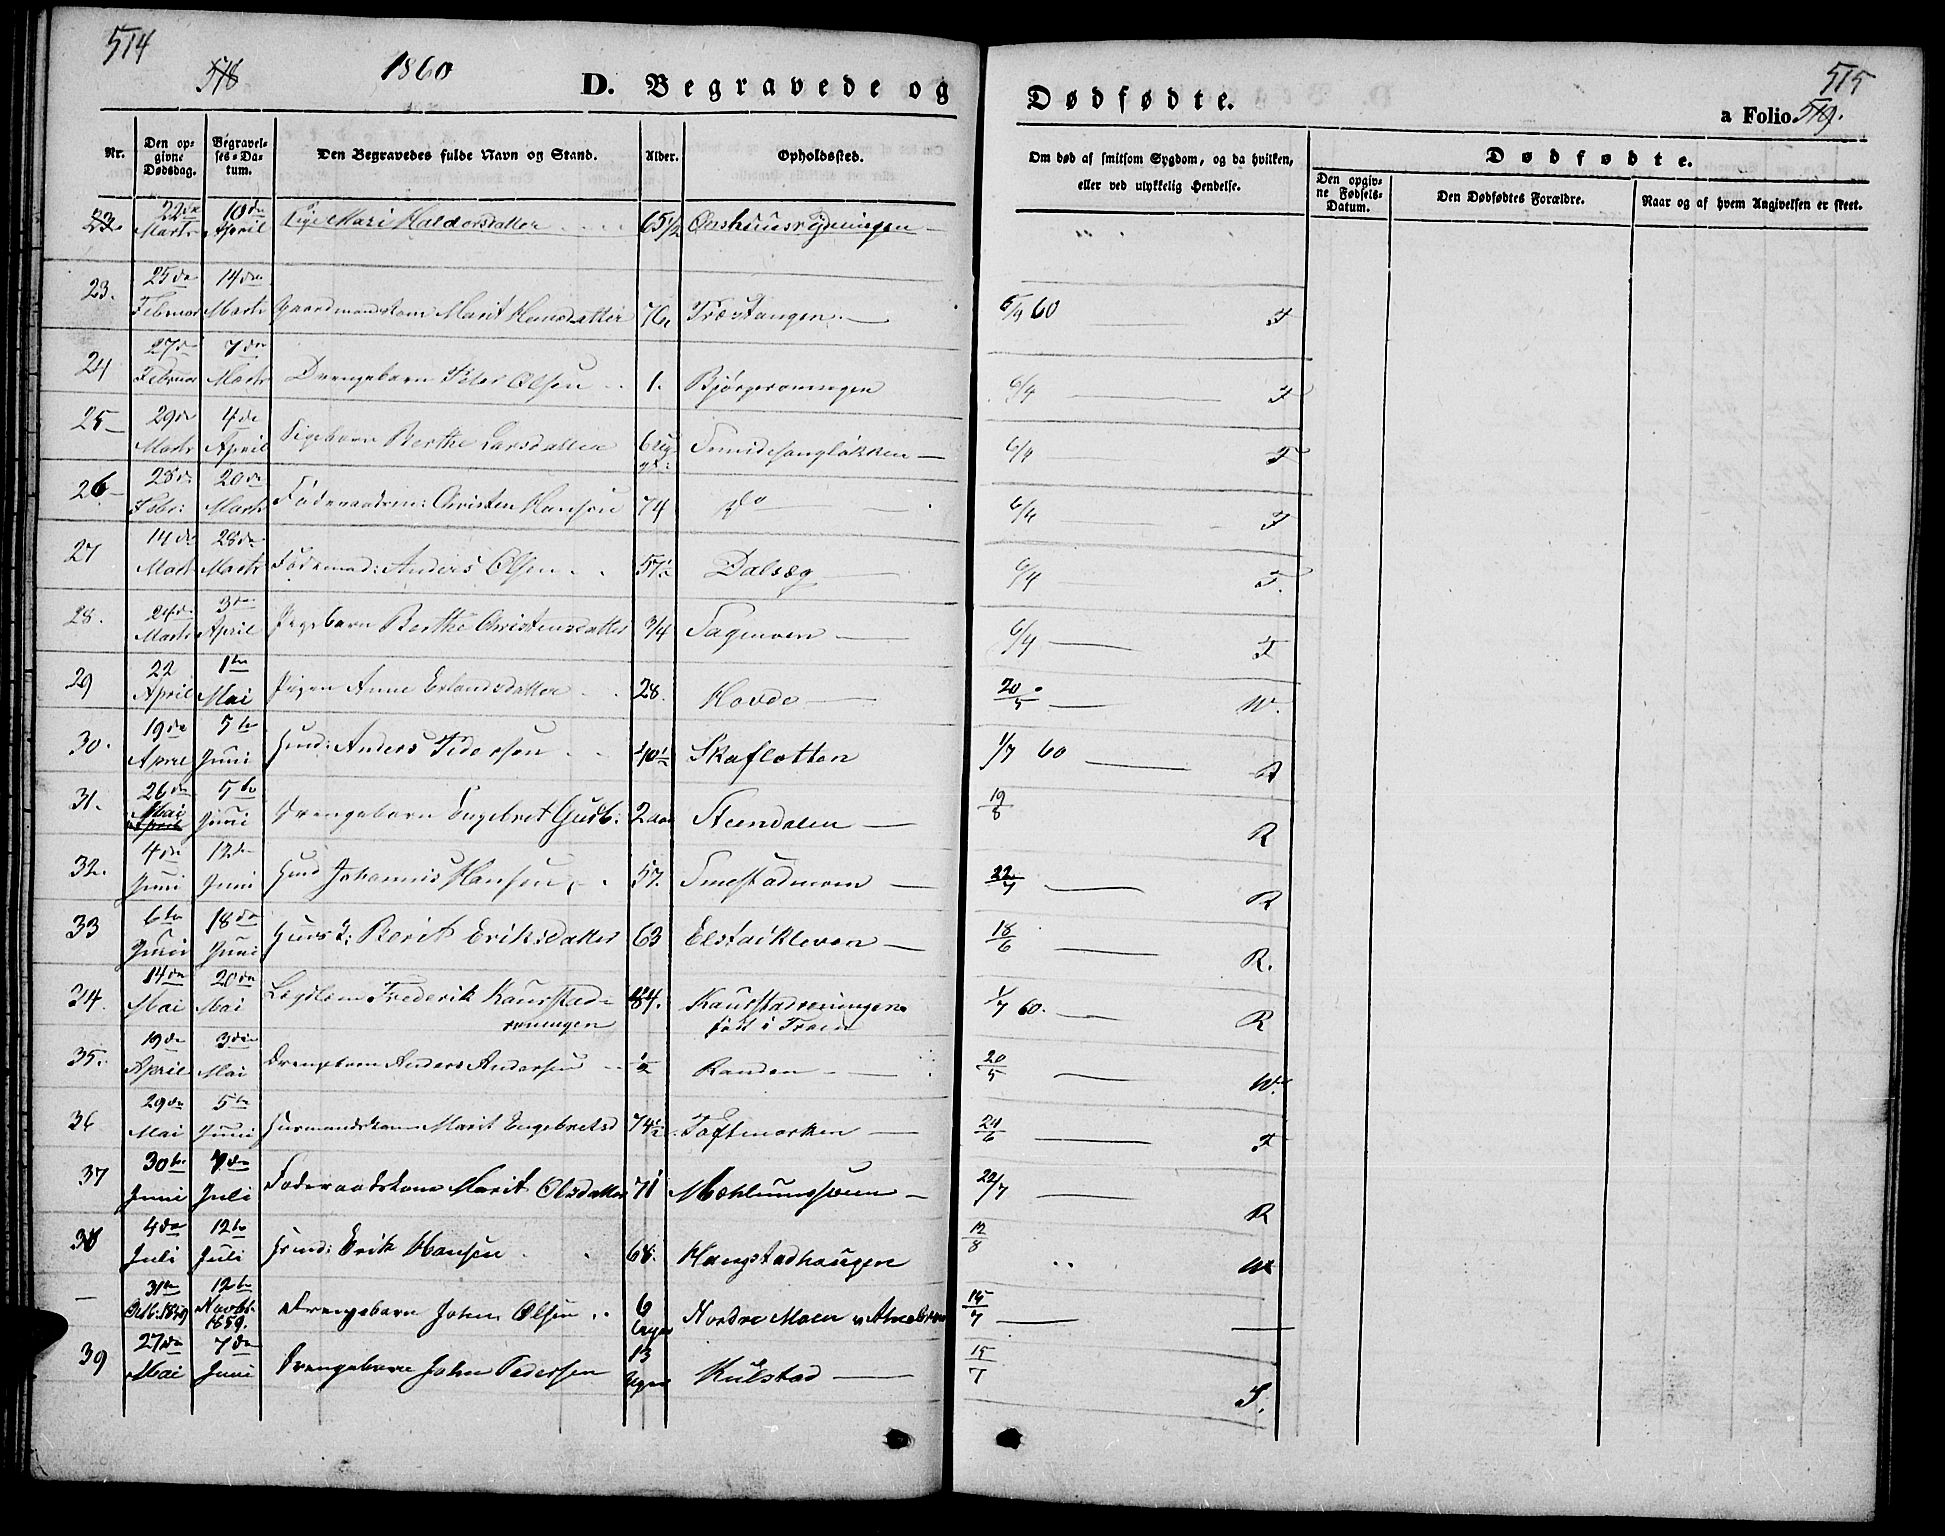 514
578
1860
D. Begravede og
Dødfødte.
515
a Folio 519.
Nr.
Den opgivne Dødsdag.
Begravelses-Datum.
Den Begravedes fulde Navn og Stand.
Alder.
Opholdssted.
Om død af smitsom Sygdom, og da hvilken, eller ved ulykkelig Hendelse.
Dødfødte.
Den opgivne Fødsels-Datum.
Den Dødfødtes Forældre.
Naar og af hvem Angivelsen er skeet.
23. 22de Marts 10de April Pige Mari Haldorsdatter 65½
23. 25de Februar 14de Marts Gaardmandskone Marit Hansdatter 76. Træstangen. 6/4 60 F
24 27de Februar 7de Marts Drengebarn Peter Olsen 1. Bjørgeroningen 6/4 F
25 29de Marts 4de April Pigebarn Berthe Larsdatter 6 Smidesangløkken 6/4 F
26 28de Febr: 20de Marts Føderaadsm: Christen Hansen 74 do 6/4 F
27 14de Marts 28de Marts Føderaad: Anders Olsen 57½ Dalseg 6/4 F.
28. 24de Marts 3die April Pigebarn Berthe Christensdatter 3/4 Sagmoen 6/4 F
29 22 April 1ste Mai Pigen Anne Erlandsdatter 28. Hovde 20/5 W.
30. 19de April 5te Juni Husmd: Anders Pedersen 40½ Skaflotten 1/7 60 R
31. 26de Mai April 5te Juni Drengebarn Engebret Gudb: 2 Steendalen 19/8 R
32. 4de Juni 12te Juni Husmd Johannis Hansen 57. Smestadmoen 22/7 R
33 6te Juni 18de Juni Berit Eriksdatter 63 Elstakleven 18/6 R.
34. 14de Mai 20de Mai Lægdslem Frederik Kaurstadroningen 84. Kaurstadroningen født i 1/7 60. R
35. 19de April 3die Mai Drengebarn Anders Andersen ½ Randen 20/5 W.
36 29de Mai 5te Juni Husmandskone Marit Engebretsd 74½ Toftemarken 24/6 F
37 30te Juni 7de Juli Føderaadskone Marit Olsdatter 71 22/7 R
38 4de Juli 12te Juli Husmd: Erik Hansen 68. Haugstadhaugen 12/8 W
— 31te Octb. 1859 12te Novbr 1859. Drengebarn John Olsen 6 Uger Nordre Moen 15/7
39 27de Mai 7de Juni Drengebarn John Pedersen 13 Uger Kulstad 15/7 S.